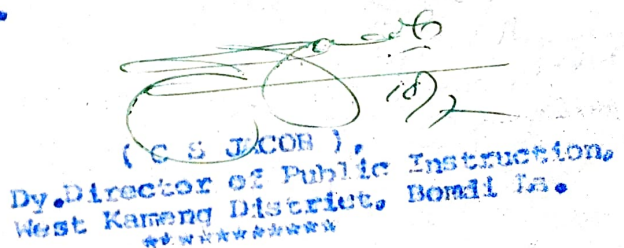 18/7
( C S JACOB ),
Dy.Director of Public Instruction,
West Kameng District, Bomdi La.
************